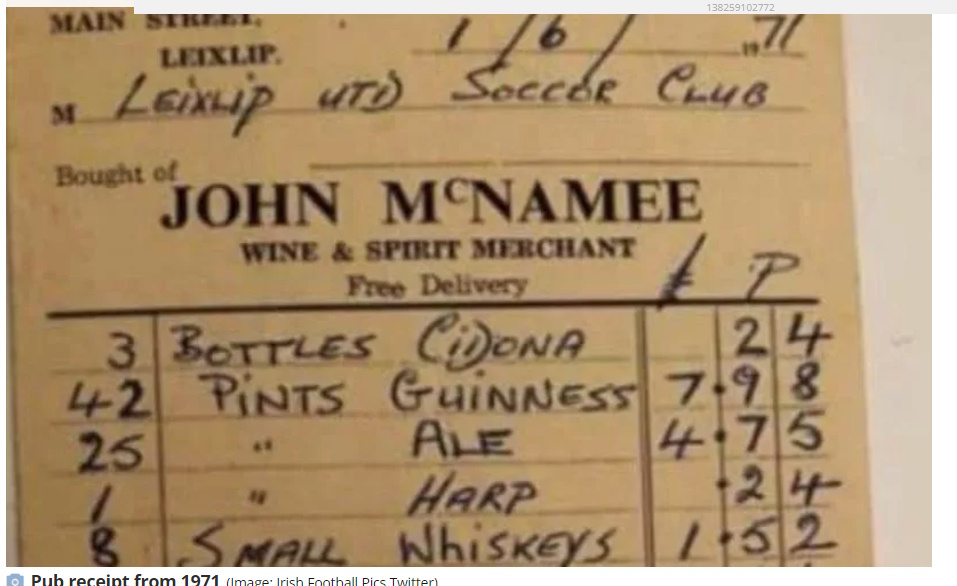 138259102772
MAIN STREET,
LEIXLIP.
1/6/ 1971
M LEIXLIP UTD SOCCER CLUB
Bought of
JOHN McNAMEE
WINE & SPIRIT MERCHANT
Free Delivery
£ P
3 BOTTLES CIDONA 2 4
42 PINTS GUINNESS 7.9 8
25 " ALE 4.7 5
1 " HARP .2 4
8 SMALL WHISKEYS 1.5 2
Pub receipt from 1971 (Image: Irish Football Pics Twitter)